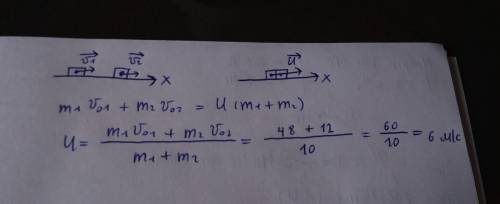 v₁ v₂ U
X X
m₁ v₀₁ + m₂ v₀₂ = U (m₁ + m₂)
U = (m₁ v₀₁ + m₂ v₀₂) / (m₁ + m₂) = (48 + 12) / 10 = 60 / 10 = 6 м/с